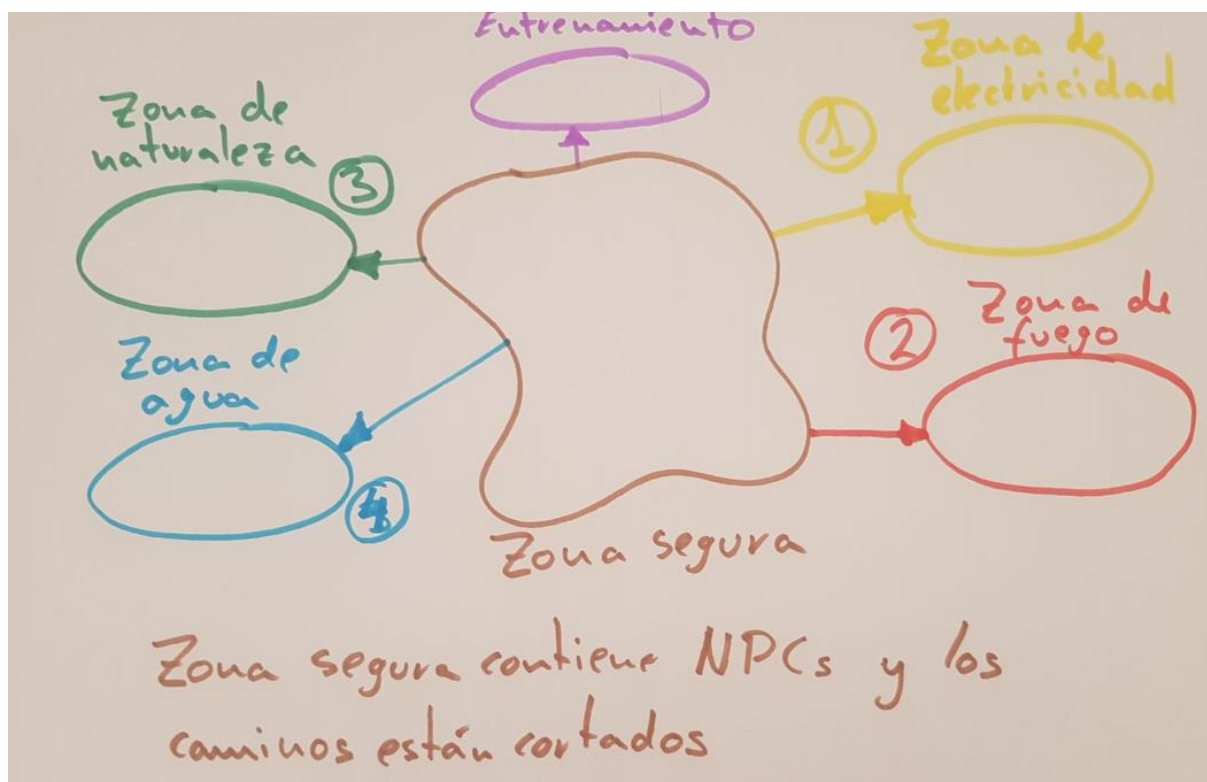 Entrenamiento
Zona de
electricidad
1
Zona de
naturaleza
3
Zona de
fuego
2
Zona de
agua
4
Zona segura
Zona segura contiene NPCs y los
caminos están cortados